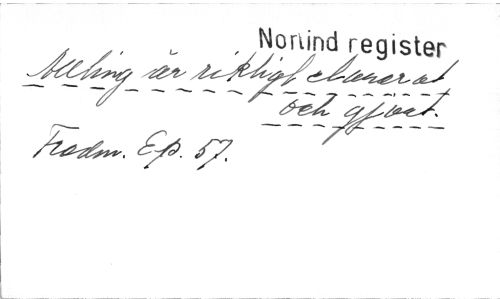 Norlind register
Alling är riktigt charmat
och gjort.
Fredm. Ep. 57.